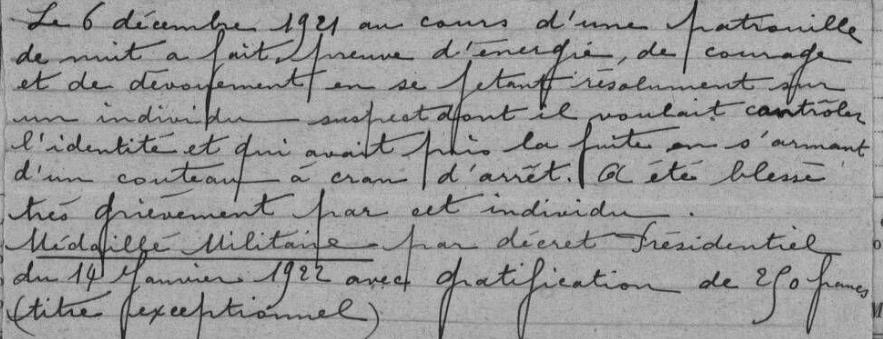 Le 6 décembre 1921 au cours d'une patrouille
de nuit a fait preuve d'énergie, de courage
et de dévouement en se jetant résolument sur
un individu suspect dont il voulait contrôler
l'identité et qui avait pris la fuite en s'armant
d'un couteau à cran d'arrêt. A été blessé
très grièvement par cet individu.
Médaille Militaire par décret Présidentiel
du 14 Janvier 1922 avec gratification de 250 francs
(titre exceptionnel)